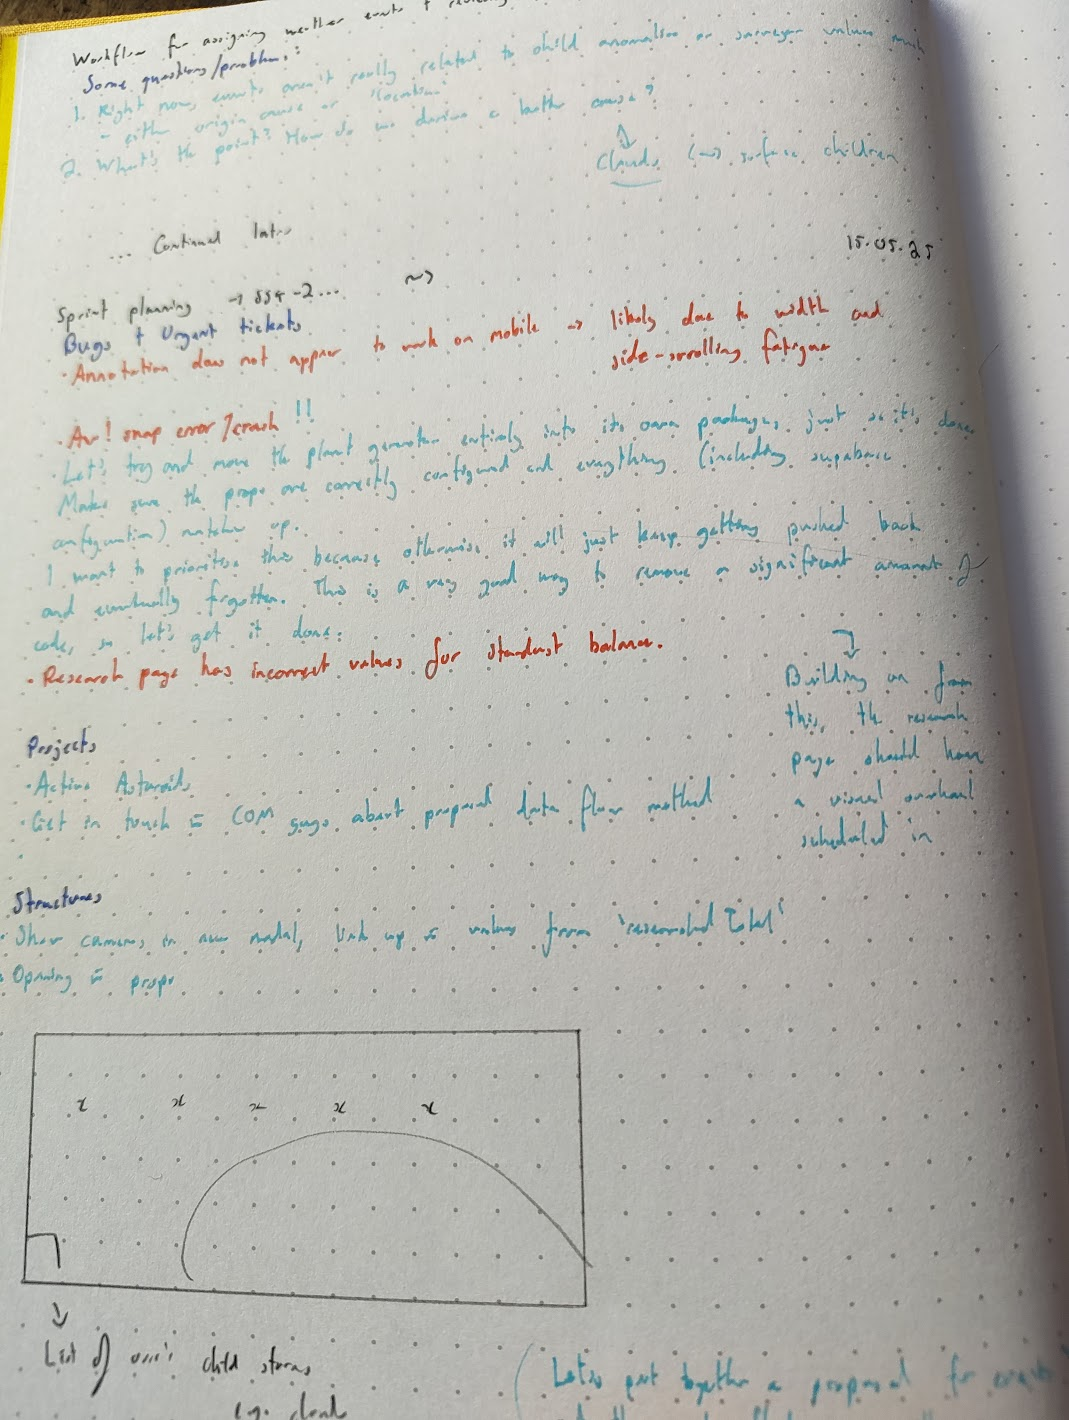 Workflow for assigning weather events +
Some questions/problems:
1. Right now, events aren't really related to child anomalies or surveyor values much
- either origin cause or "location"
2. What's the point? How do we derive a better cause?
Clouds surface children
... Continued later
15.05.25
Sprint planning → SSG-2... ~>
Bugs + Urgent tickets
· Annotation does not appear to work on mobile → likely due to width and
side-scrolling fatigue
· Aw! snap error/crash !!
· Let's try and move the planet generator entirely into its own package, just so it's done.
Make sure the props are correctly configured and everything (including supabase
configuration) matches up.
I want to prioritise this because otherwise it will just keep getting pushed back
and eventually forgotten. This is a very good way to remove a significant amount of
code, so let's get it done.
· Research page has incorrect values for stardust balance.
Building on from
this, the research
page should have
a visual overhaul
scheduled in
Projects
· Active Asteroids
· Get in touch = COM guys about proposal data flow method
Structures
· Show cameras in new modal, link up = values from 'researched Total'
· Opening = props
x x x x x
List of user's child storms
e.g. clouds
Let's put together a proposal for